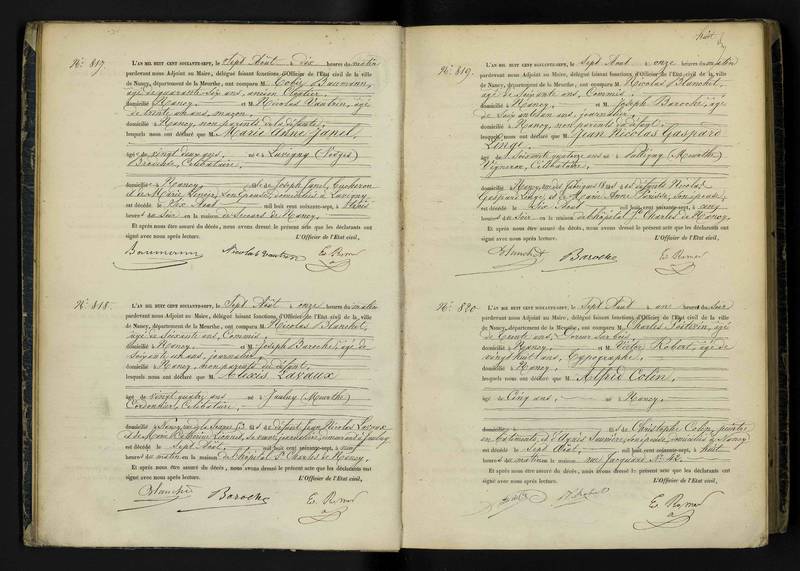 N° 817.
L'AN MIL HUIT CENT SOIXANTE-SEPT, le Sept Août à dix heures du matin
pardevant nous Adjoint au Maire, délégué faisant fonctions d'Officier de l'Etat civil de la ville
de Nancy, département de la Meurthe, ont comparu M. Baumann,
âgé de quarante six ans, ancien
domicilié à Nancy et M Nicolas Vautrin, âgé
de trente un ans, maçon,
domicilié à Nancy, non parents de la défunte,
lesquels nous ont déclaré que M Marie Anne Janel,
âgé de vingt deux ans, né à Luvigny (Vosges)
Brodeuse, Célibataire,
domicilié à Nancy de Joseph Janel,
et de Marie son épouse, domiciliés à Luvigny
est décédé le Six Août mil huit cent soixante-sept, à
heures du Soir en la maison de Secours de Nancy.
Et après nous être assuré du décès, nous avons dressé le présent acte que les déclarants ont
signé avec nous après lecture. L'Officier de l'Etat civil,
Baumann Nicolas Vautrin
N° 818.
L'AN MIL HUIT CENT SOIXANTE-SEPT, le Sept Août à onze heures du matin
pardevant nous Adjoint au Maire, délégué faisant fonctions d'Officier de l'Etat civil de la ville
de Nancy, département de la Meurthe, ont comparu M. Nicolas Blanchet,
âgé de Soixante ans, Commis,
domicilié à Nancy et M Joseph Baroche, âgé de
Soixante un ans, journalier,
domicilié à Nancy non parents du défunt,
lesquels nous ont déclaré que M Alexis Lavaux
âgé de vingt quatre ans né à Jaulny (Meurthe)
Cordonnier, Célibataire,
domicilié à Nancy, fils de défunt Jean Nicolas Lavaux
et de Catherine sa veuve, journalière, demeurant à Jaulny
est décédé le Sept Août mil huit cent soixante-sept, à neuf
heures du matin en la maison de l'hôpital St Charles de Nancy.
Et après nous être assuré du décès, nous avons dressé le présent acte que les déclarants ont
signé avec nous après lecture. L'Officier de l'Etat civil,
Blanchet Baroche
N° 819.
L'AN MIL HUIT CENT SOIXANTE-SEPT, le Sept Août à onze heures du matin
pardevant nous Adjoint au Maire, délégué faisant fonctions d'Officier de l'Etat civil de la ville
de Nancy, département de la Meurthe, ont comparu M. Nicolas Blanchet,
âgé de Soixante ans, Commis,
domicilié à Nancy, et M Joseph Baroche, âgé
de Soixante un ans, journalier,
domicilié à Nancy, non parents du défunt,
lesquels nous ont déclaré que M Jean Nicolas Gaspard
Lingé
âgé de Soixante quatorze ans né à (Meurthe)
Vigneron, Célibataire,
domicilié à Nancy, de défunts Nicolas
Gaspard Lingé, et de Marie Anne son épouse
est décédé le Six Août mil huit cent soixante-sept, à cinq
heures du Soir en la maison de l'hôpital St Charles de Nancy,
Et après nous être assuré du décès, nous avons dressé le présent acte que les déclarants ont
signé avec nous après lecture. L'Officier de l'Etat civil,
Blanchet Baroche
N° 820
L'AN MIL HUIT CENT SOIXANTE-SEPT, le Sept Août à une heure du Soir
pardevant nous Adjoint au Maire, délégué faisant fonctions d'Officier de l'Etat civil de la ville
de Nancy, département de la Meurthe, ont comparu M. Charles âgé
de Trente ans, Doreur sur bois,
domicilié à Nancy, et M Victor Robert, âgé de
vingt huit ans, Typographe,
domicilié à Nancy,
lesquels nous ont déclaré que M Alfred Colin,
âgé de Cinq ans, né à Nancy,
domicilié à de Christophe Colin, peintre
en bâtiments, et d'Agnès son épouse, domiciliés à Nancy
est décédé le Sept Août, mil huit cent soixante-sept, à huit
heures du matin en la maison rue Jacquard N° 42.
Et après nous être assuré du décès, nous avons dressé le présent acte que les déclarants ont
signé avec nous après lecture. L'Officier de l'Etat civil,